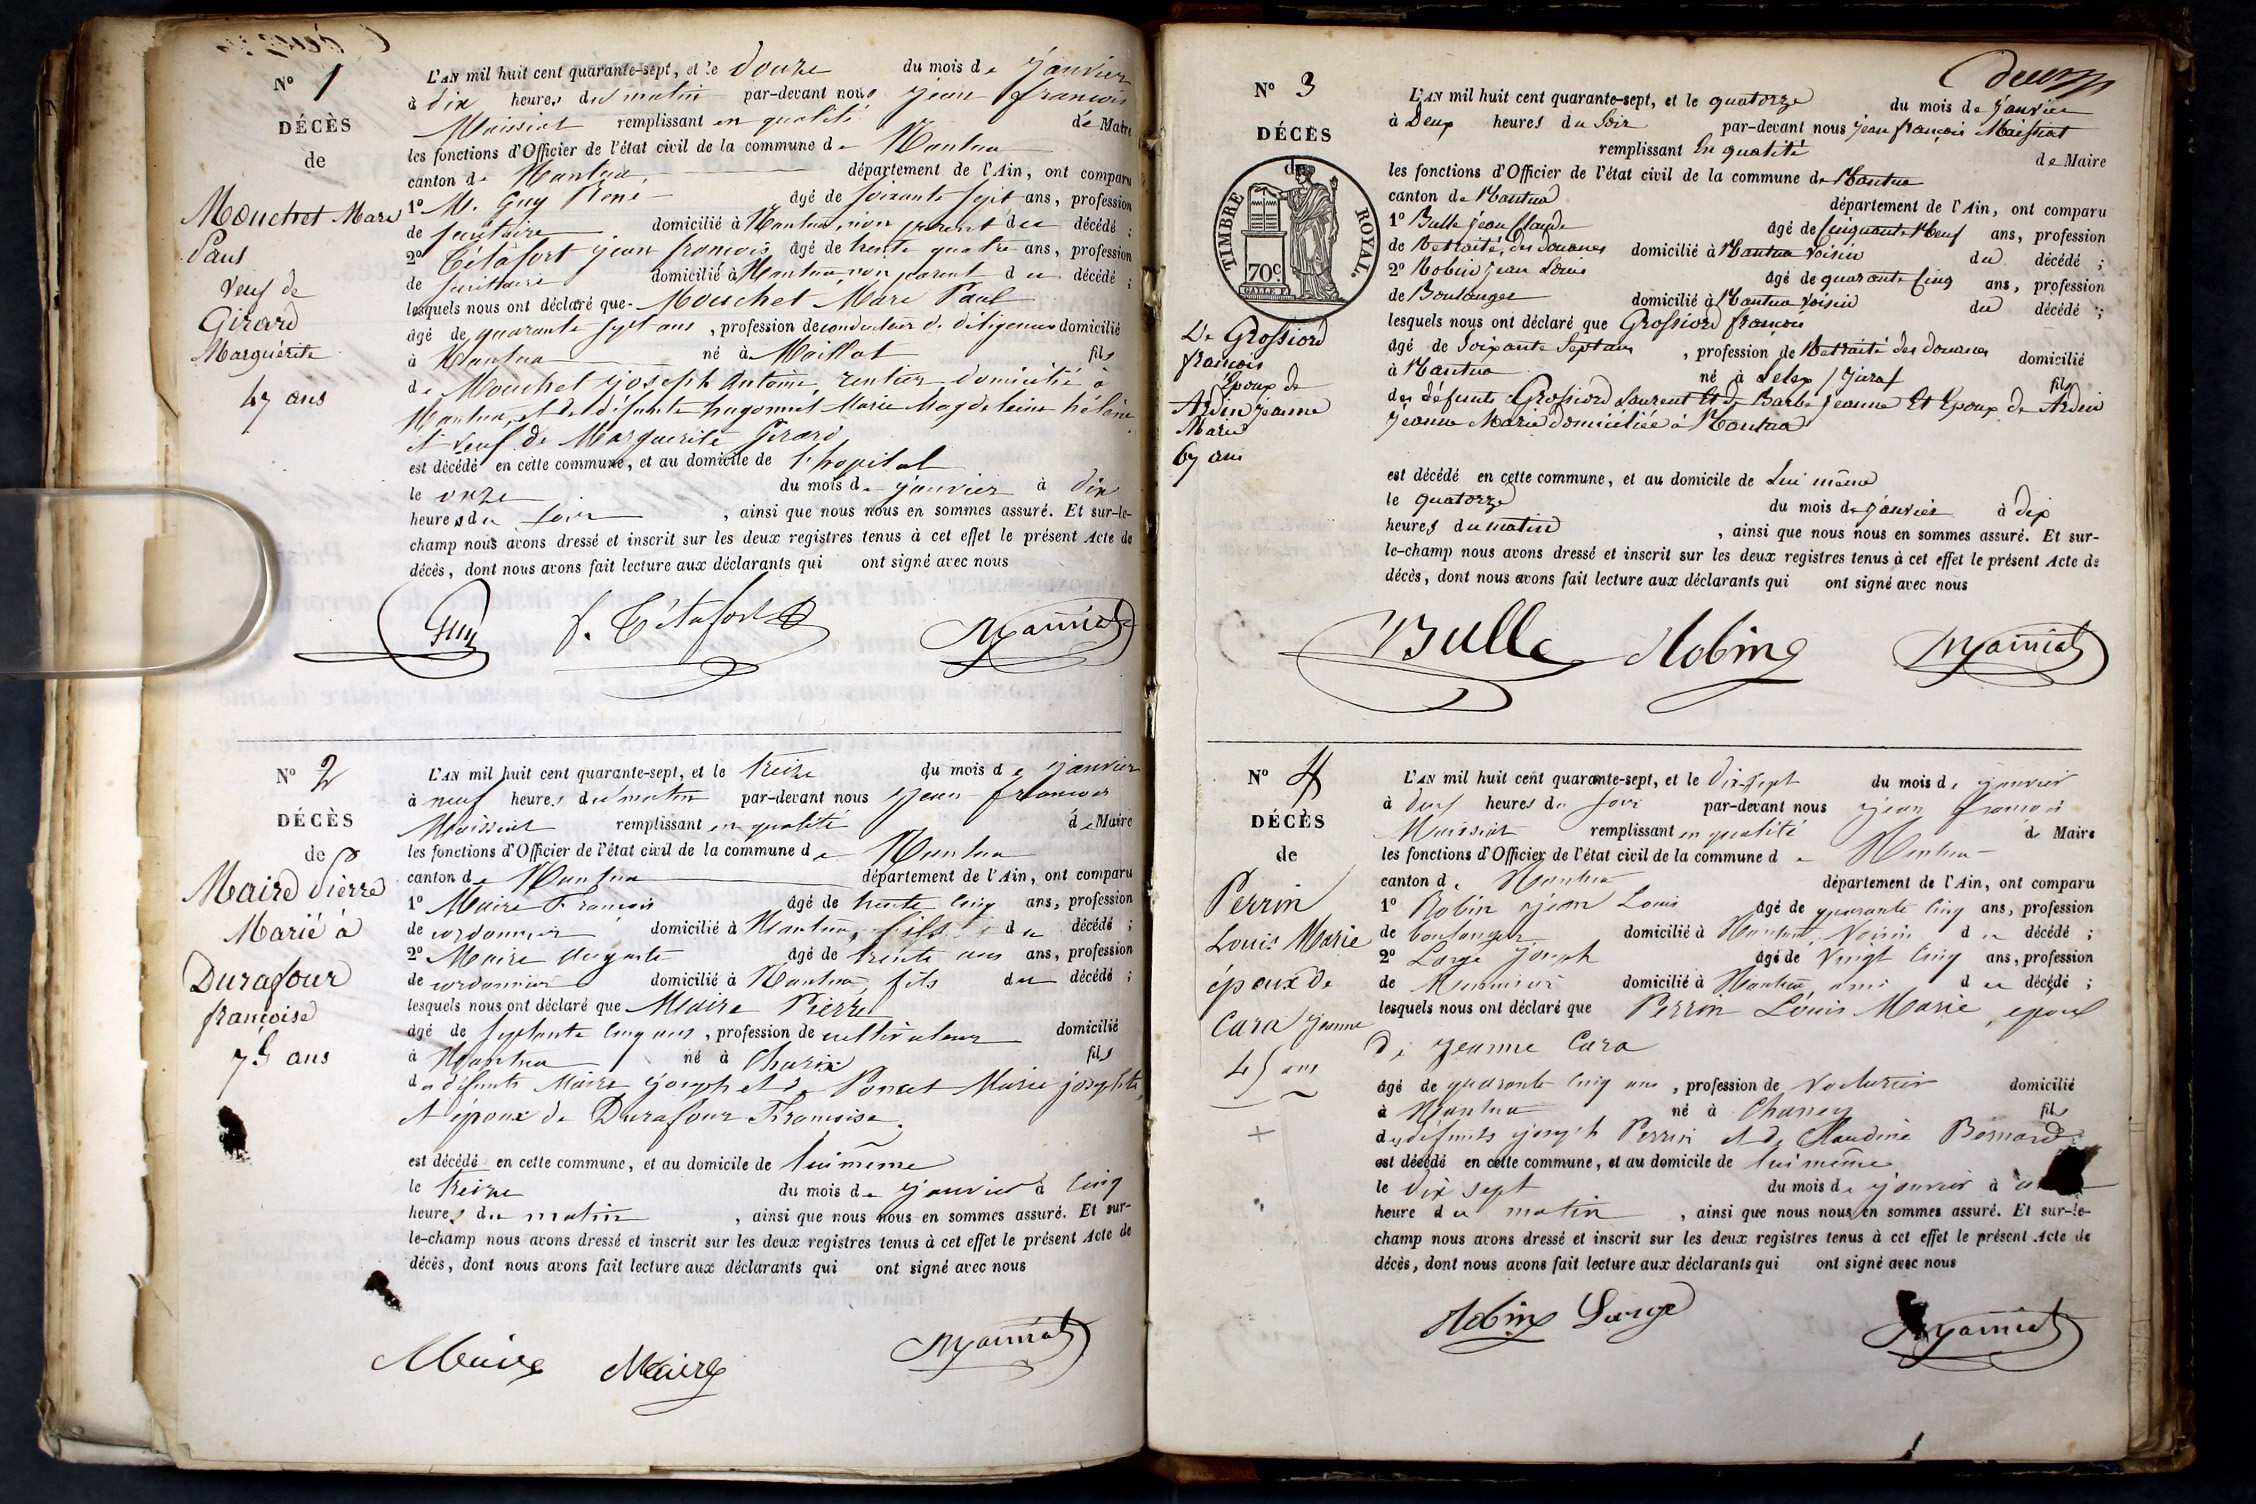 No 1
DÉCÈS
de
Mouchet Marc
Paul
Veuf de
Girard
Marguérite
47 ans
L'AN mil huit cent quarante-sept, et le douze du mois de janvier
à dix heures du matin par-devant nous jean françois
Maissiat remplissant en qualité de Maire
les fonctions d'Officier de l'état civil de la commune de Nantua
canton de Nantua département de l'Ain, ont comparu
1o M. Guy René âgé de soixante sept ans, profession
de domicilié à Nantua, non parent du décédé ;
2o Tétafort jean françois âgé de trente quatre ans, profession
de domicilié à Nantua non parent du décédé ;
lesquels nous ont déclaré que Mouchet Marc Paul
âgé de quarante sept ans, profession de conducteur de diligences domicilié
à Nantua né à Maillat fils
de Mouchet joseph antoine rentier domicilié à
Nantua, et de défunte hugonnet Marie Magdeleine hélène
et veuf de Marguerite Girard
est décédé en cette commune, et au domicile de l'hopital
le onze du mois de janvier à dix
heures du soir, ainsi que nous nous en sommes assuré. Et sur-le-
champ nous avons dressé et inscrit sur les deux registres tenus à cet effet le présent Acte de
décès, dont nous avons fait lecture aux déclarants qui ont signé avec nous
Guy f. Tétafort Maissiat
No 2
DÉCÈS
de
Maire Pierre
Marié à
Durafour
françoise
75 ans
L'AN mil huit cent quarante-sept, et le treize du mois de janvier
à neuf heures du matin par-devant nous jean françois
Maissiat remplissant en qualité de Maire
les fonctions d'Officier de l'état civil de la commune de Nantua
canton de Nantua département de l'Ain, ont comparu
1o Maire François âgé de trente cinq ans, profession
de cordonnier domicilié à Nantua, fils du décédé ;
2o Maire auguste âgé de trente ans ans, profession
de cordonnier domicilié à Nantua, fils du décédé ;
lesquels nous ont déclaré que Maire Pierre
âgé de septante cinq ans, profession de cultivateur domicilié
à Nantua né à Charix fils
des défunts Maire joseph et de Poncet Marie josephte,
et époux de Durafour Françoise.
est décédé en cette commune, et au domicile de lui même
le treize du mois de janvier à cinq
heures du matin, ainsi que nous nous en sommes assuré. Et sur-
le-champ nous avons dressé et inscrit sur les deux registres tenus à cet effet le présent Acte de
décès, dont nous avons fait lecture aux déclarants qui ont signé avec nous
Maire Maire Maissiat
deux
No 3
DÉCÈS
de
TIMBRE ROYAL.
70c
De Grossiord
françois
Époux de
Ardin jeanne
Marie
67 ans
L'AN mil huit cent quarante-sept, et le quatorze du mois de janvier
à Deux heures du soir par-devant nous jean françois Maissiat
remplissant En qualité de Maire
les fonctions d'Officier de l'état civil de la commune de Nantua
canton de Nantua département de l'Ain, ont comparu
1o Bulle jean Claude âgé de Cinquante Neuf ans, profession
de Retraité des douanes domicilié à Nantua Voisin du décédé ;
2o Robin jean Louis âgé de quarante Cinq ans, profession
de Boulanger domicilié à Nantua Voisin du décédé ;
lesquels nous ont déclaré que Grossiord françois
âgé de Soixante Sept ans, profession de Retraité des douanes domicilié
à Nantua né à (jura) fils
des défunts Grossiord Laurent Et de Barbe jeanne Et Epoux de Ardin
jeanne Marie domiciliée à Nantua
est décédé en cette commune, et au domicile de Lui même
le quatorze du mois de janvier à dix
heures du matin, ainsi que nous nous en sommes assuré. Et sur-
le-champ nous avons dressé et inscrit sur les deux registres tenus à cet effet le présent Acte de
décès, dont nous avons fait lecture aux déclarants qui ont signé avec nous
Bulle Robin Maissiat
No 4
DÉCÈS
de
Perrin
Louis Marie
époux de
Cara jeanne
45 ans
L'AN mil huit cent quarante-sept, et le dix-sept du mois de janvier
à deux heures du soir par-devant nous jean françois
Maissiat remplissant en qualité de Maire
les fonctions d'Officier de l'état civil de la commune de Nantua
canton de Nantua département de l'Ain, ont comparu
1o Robin jean Louis âgé de quarante cinq ans, profession
de boulanger domicilié à Nantua, Voisin du décédé ;
2o Large joseph âgé de vingt cinq ans, profession
de Menuisier domicilié à Nantua, ami du décédé ;
lesquels nous ont déclaré que Perrin Louis Marie, époux
de jeanne Cara
âgé de quarante cinq ans, profession de voiturier domicilié
à Nantua né à Chaney fils
des défunts joseph Perrin et de Claudine Bernard
est décédé en cette commune, et au domicile de lui même
le dix sept du mois de janvier à
heure du matin, ainsi que nous nous en sommes assuré. Et sur-le-
champ nous avons dressé et inscrit sur les deux registres tenus à cet effet le présent Acte de
décès, dont nous avons fait lecture aux déclarants qui ont signé avec nous
Robin Large Maissiat